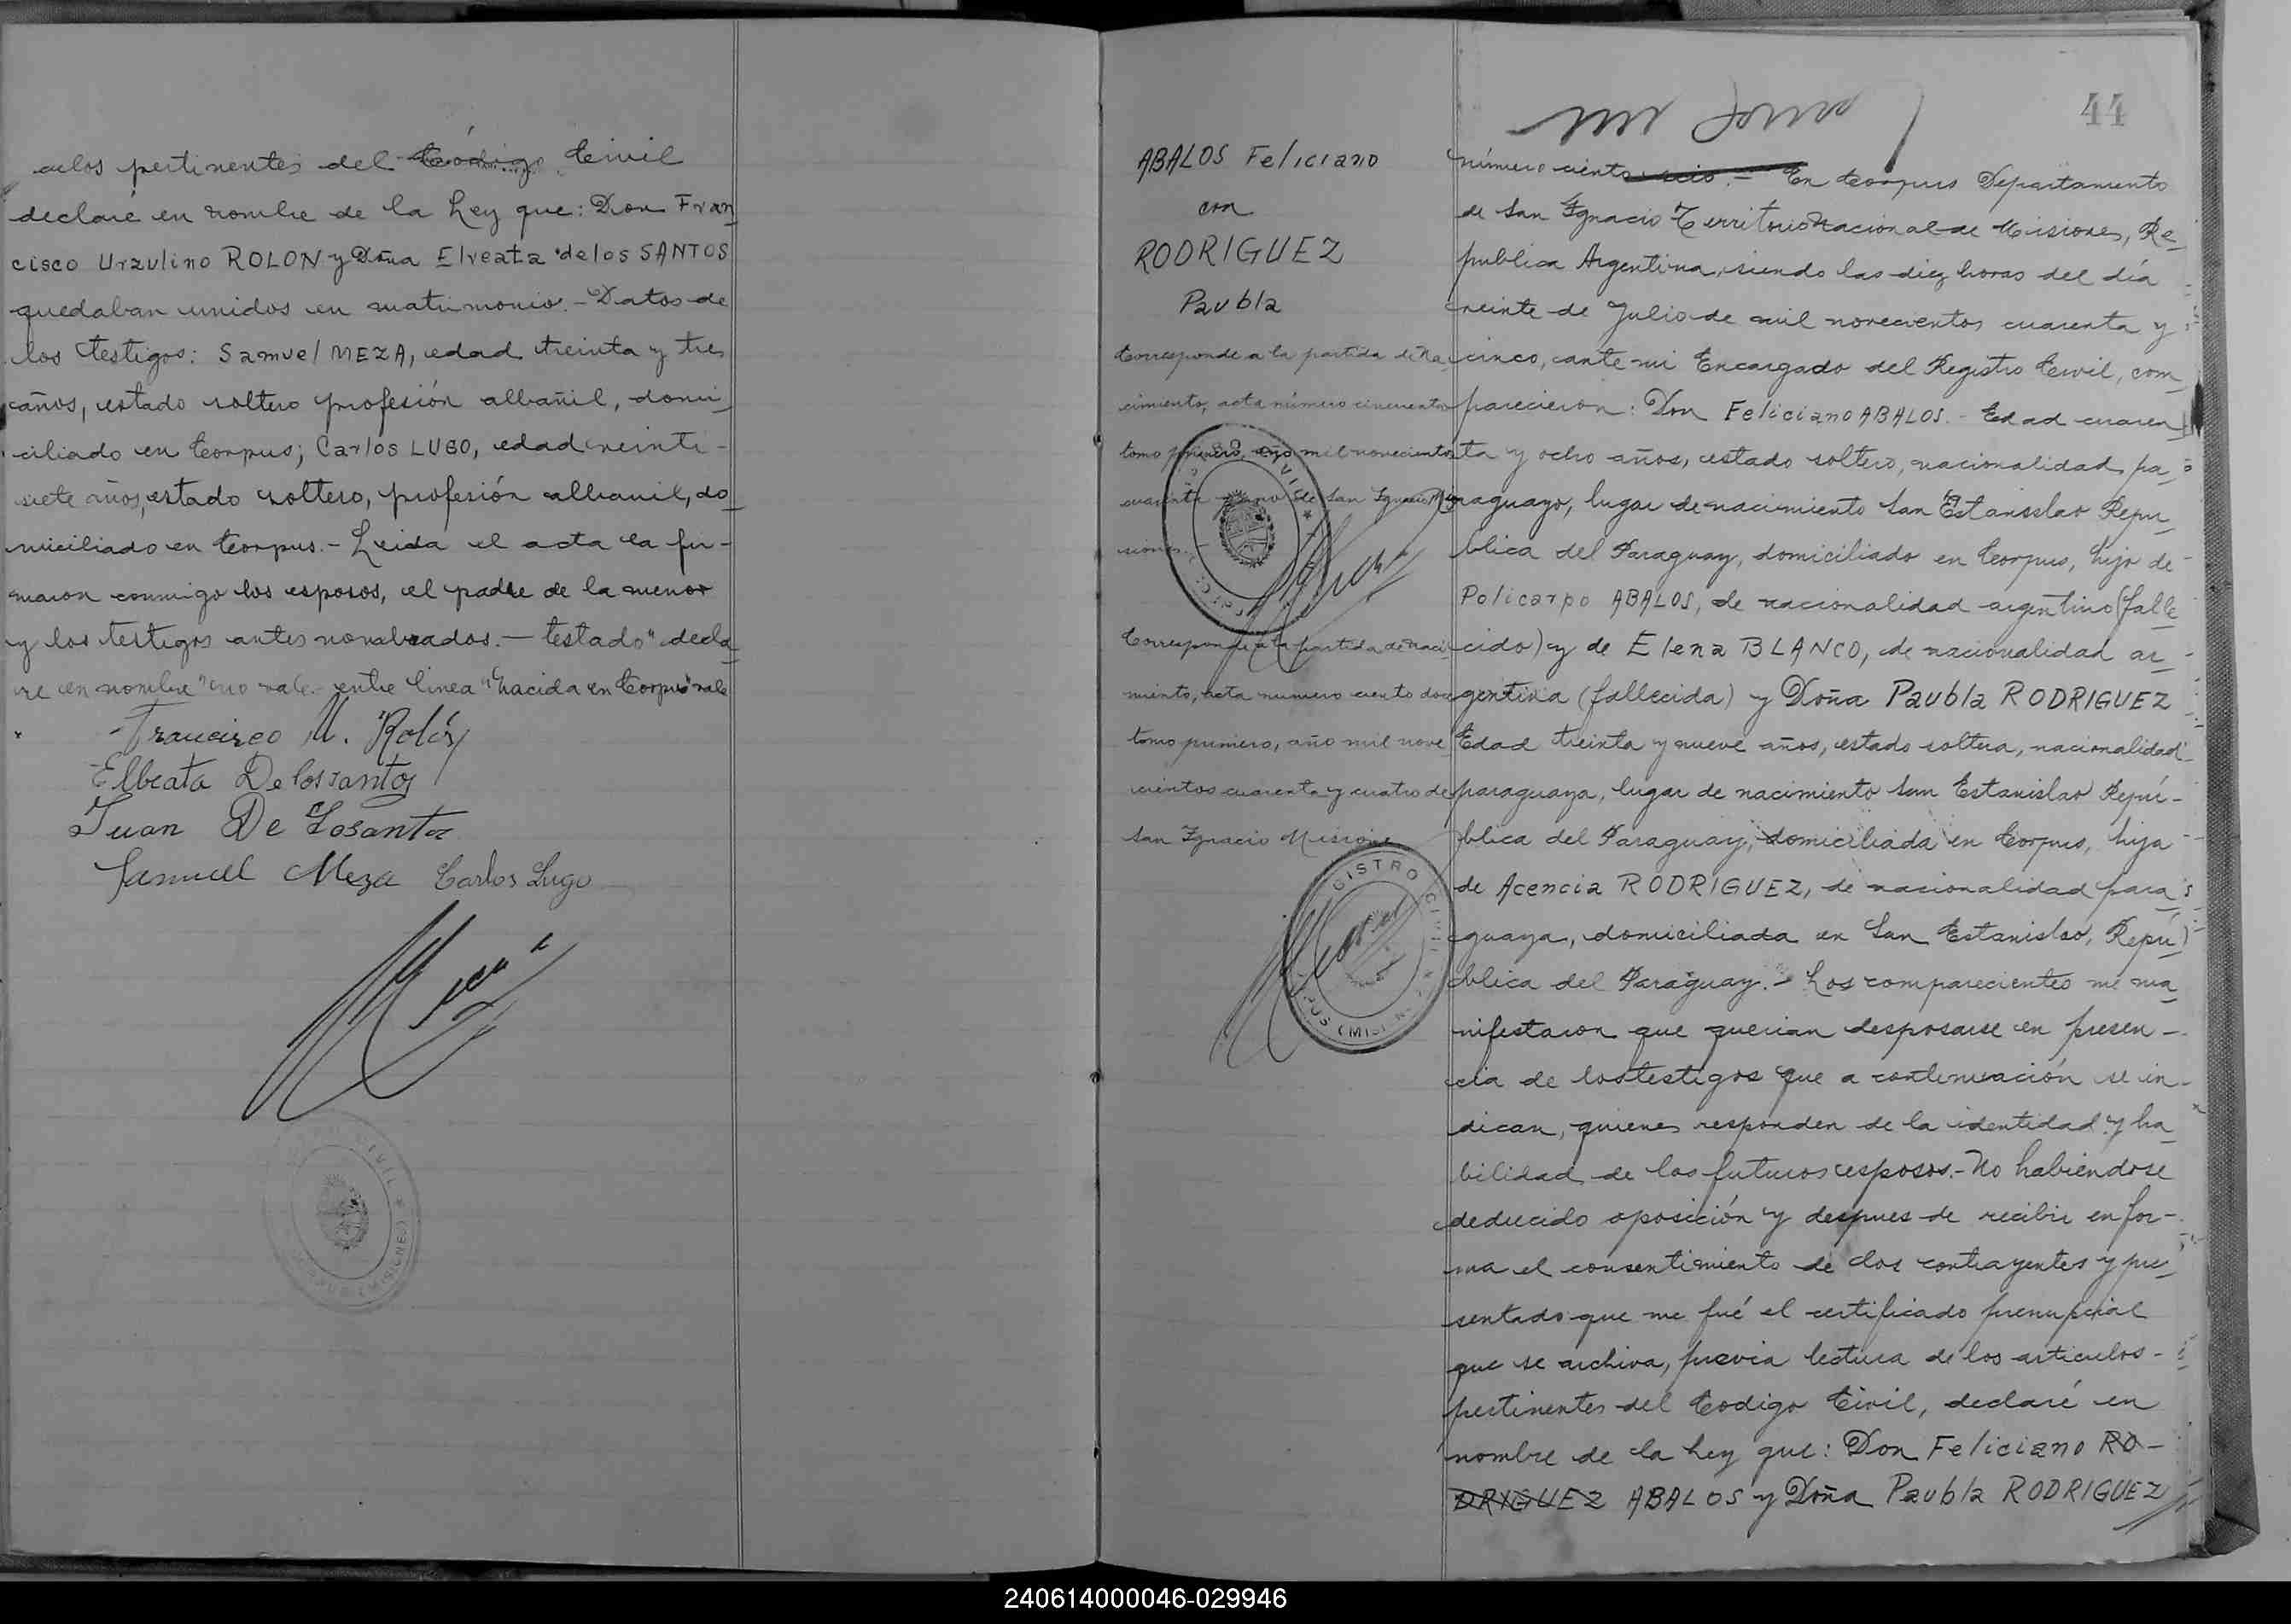 culos pertinentes del Código Civil
declaré en nombre de la Ley que: Don Fran
cisco Urzulino ROLON y Doña Elveata de los SANTOS
quedaban unidos en matrimonio.- Datos de
los testigos: Samuel MEZA, edad treinta y tres
años, estado soltero profesión albañil, domi
ciliado en Corpus; Carlos LUGO, edad veinti-
siete años, estado soltero, profesión albanil, do
miciliado en Corpus.- Leida el acta la fir-
maron conmigo los esposos, el padre de la menor
y los testigos antes nombrados.- testado "decla
re en nombre" no vale.- entre linea "nacida en Corpus" vale
Francisco U. Rolón
Elbeata De los santos
Juan De Losantos
Samuel Meza Carlos Lugo
44
ABALOS Feliciano
con
RODRIGUEZ
Paubla
Corresponde a la partida de Na
cimiento, acta número cincuenta
tomo primero, año mil novecientos
cuarenta y uno de San Ignacio Mi
siones.-
Corresponde a la partida de naci
miento, acta numero ciento doce
tomo primero, año mil nove
cientos cuarenta y cuatro de
San Ignacio Misiones
REGISTRO CIVIL
CORPUS (MISIONES)
número ciento seis.- En Corpus Departamento
de San Ignacio Territorio Nacional de Misiones, Re
publica Argentina, siendo las diez horas del día
veinte de Julio de mil novecientos cuarenta y
cinco, ante mi Encargado del Registro Civil, com
parecieron: Don Feliciano ABALOS.- Edad cuaren
ta y ocho años, estado soltero, nacionalidad pa
raguayo, lugar de nacimiento San Estanislao Repu
blica del Paraguay, domiciliado en Corpus, hijo de
Policarpo ABALOS, de nacionalidad argentino (falle
cido) y de Elena BLANCO, de nacionalidad ar
gentina (fallecida) y Doña Paubla RODRIGUEZ
Edad treinta y nueve años, estado soltera, nacionalidad
paraguaya, lugar de nacimiento San Estanislao Repú-
blica del Paraguay, domiciliada en Corpus, hija
de Acencia RODRIGUEZ, de nacionalidad para
guaya, domiciliada en San Estanislao, Repú
blica del Paraguay.- Los comparecientes me ma
nifestaron que querian desposarse en presen-
cia de los testigos que a continuación se in
dican, quienes responden de la identidad y ha
bilidad de los futuros esposos.- No habiendose
deducido oposición y despues de recibir en for-
ma el consentimiento de los contrayentes y pre
sentado que me fué el certificado prenupcial
que se archiva, previa lectura de los articulos-
pertinentes del Codigo Civil, declaré en
nombre de la Ley que: Don Feliciano RO-
DRIGUEZ ABALOS y Doña Paubla RODRIGUEZ
240614000046-029946